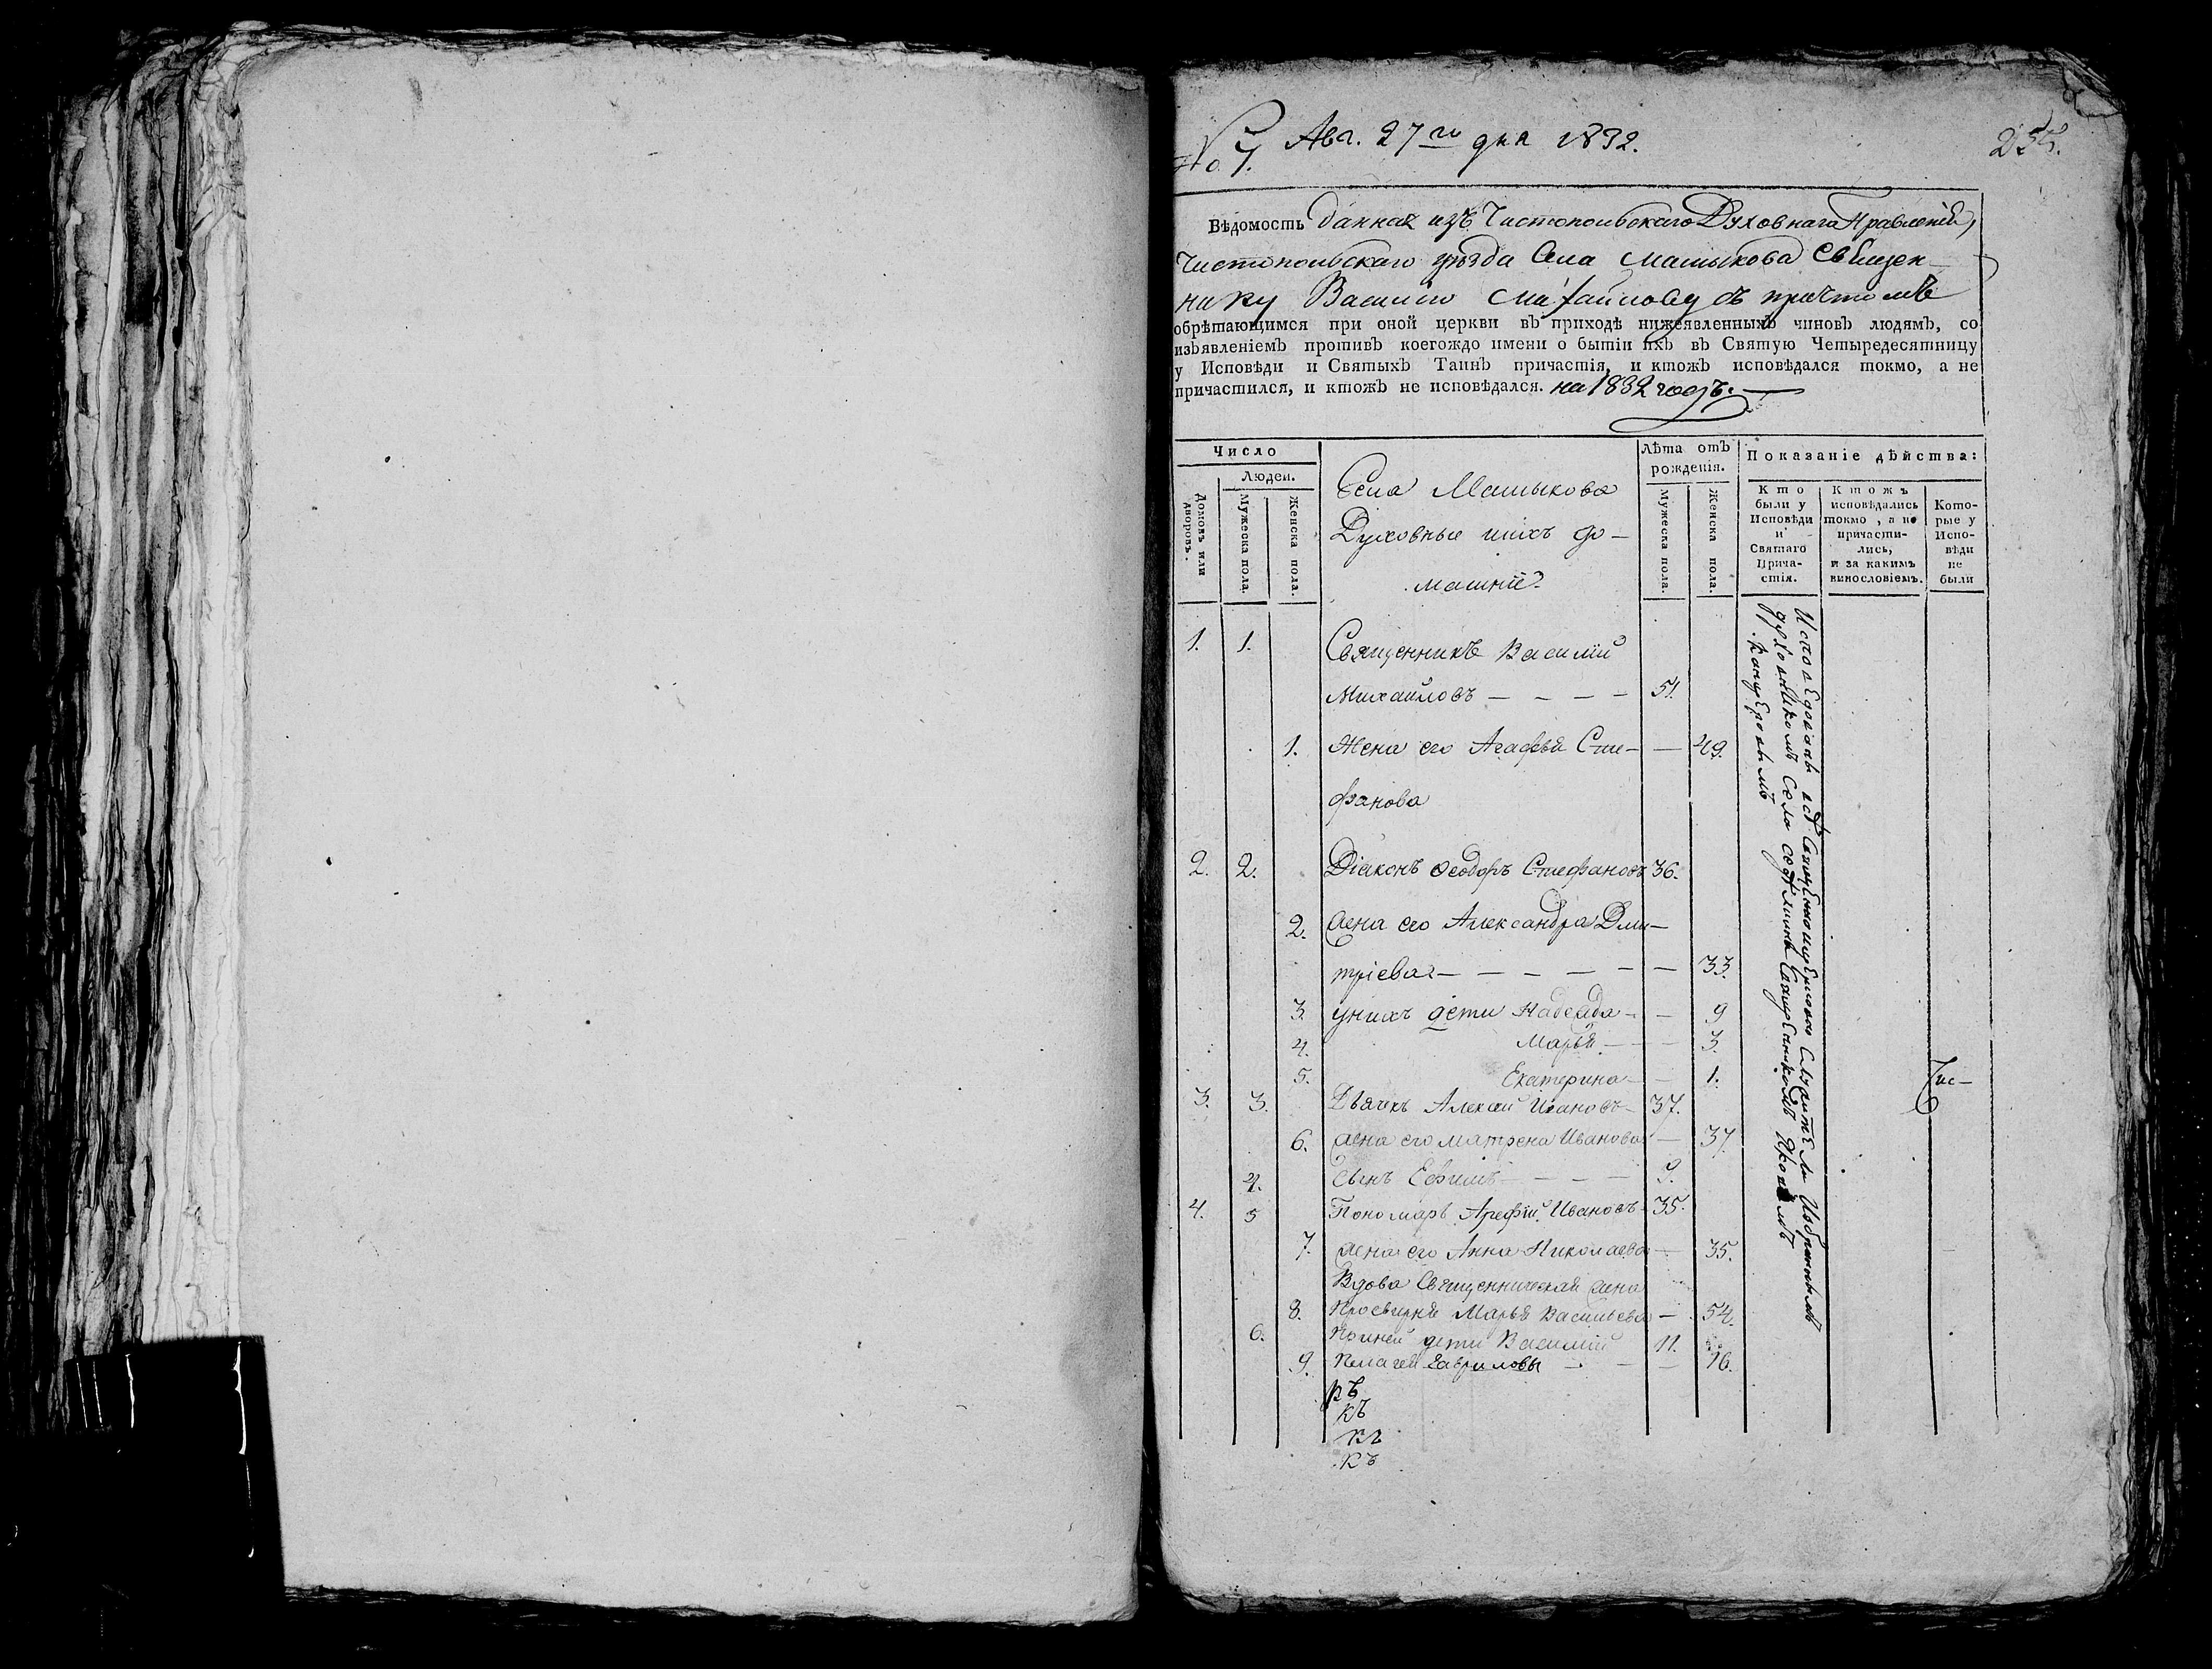 № 7. Авг. 27го дня 1832.
Вѣдомость данная изъ Чистопольскаго Духовнаго Правленія,
Чистопольскаго уѣзда Села Машыкова Священ-
нику Василію Михайлову съ причтомъ
обрѣтающимся при оной церкви въ приходѣ нижеявленныхъ чиновъ людямъ, со
изъявленіемъ противъ коегождо имени о бытіи ихъ въ Святую Четыредесятницу
у Исповѣди и Святыхъ Таинъ причастія, и ктожъ исповѣдался токмо, а не
причастился, и ктожъ не исповѣдался. на 1832 годъ.
Число
Людей.
Домовъ или дворовъ.
Мужеска пола.
Женска пола.
Села Машыкова
Духовные ихъ до-
машніе
Лѣта отъ рожденія.
Мужеска пола.
Женска пола.
Показаніе дѣйства:
Кто были у Исповѣди и Святаго Прича- стія.
Ктожъ исповѣдались токмо, а не причасти- лись, и за какимъ винословіемъ.
Кото- рые у Испо- вѣди не были
1. 1. Священникъ Василій
Михайловъ — — — — 51.
1. Жена его Агафья Сте- — 49.
фанова
2. 2. Діаконъ Ѳеодоръ Стефановъ 36.
2. Жена его Александра Дми-
тріева — — — — — — 33.
3. уних дети Надежда — — 9
4. Марья — — — 3.
5. Екатерина — — 1.
3. 3. Дьячкъ Алексей Ивановъ — 37.
6. жена его матрена Иванова — 37
4. сынъ Ефимъ — — — — 9.
4. 5 Пономарь Арефій Ивановъ — 35.
7. жена его Анна Николаева — 35.
Вдова Священническая жена
8. Просвирня Марья Васильева — 54.
6. дети Василій 11.
9. Пелагея Гавриловы — — — 16.
къ
къ
къ
Исповѣдованы
духовникомъ Села